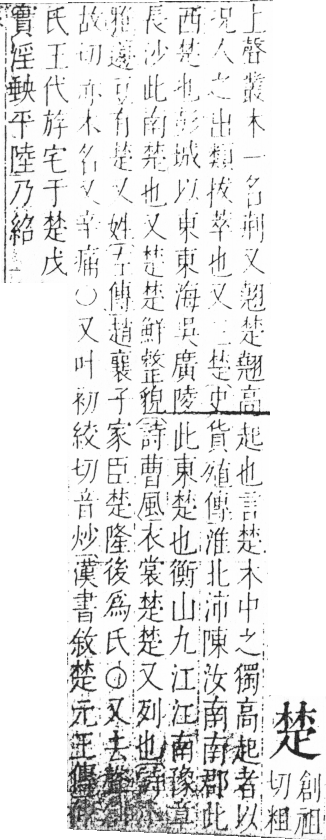 楚
創祖
切粗
上聲叢木一名荊又翹楚翹高起也言楚木中之獨高起者以
況人之出類拔萃也又三楚史貨殖傳淮北沛陳汝南南郡此
西楚也彭城以東東海吳廣陵此東楚也衡山九江江南豫章
長沙此南楚也又楚楚鮮整貌詩曹風衣裳楚楚又列也詩小
雅籩豆有楚又姓左傳趙襄子家臣楚隆後爲氏○又去聲創
故切亦木名又辛痛○又叶初絞切音炒漢書敘楚元王傳
氏王代斿宅于楚戊
實淫𡙇平陸乃紹